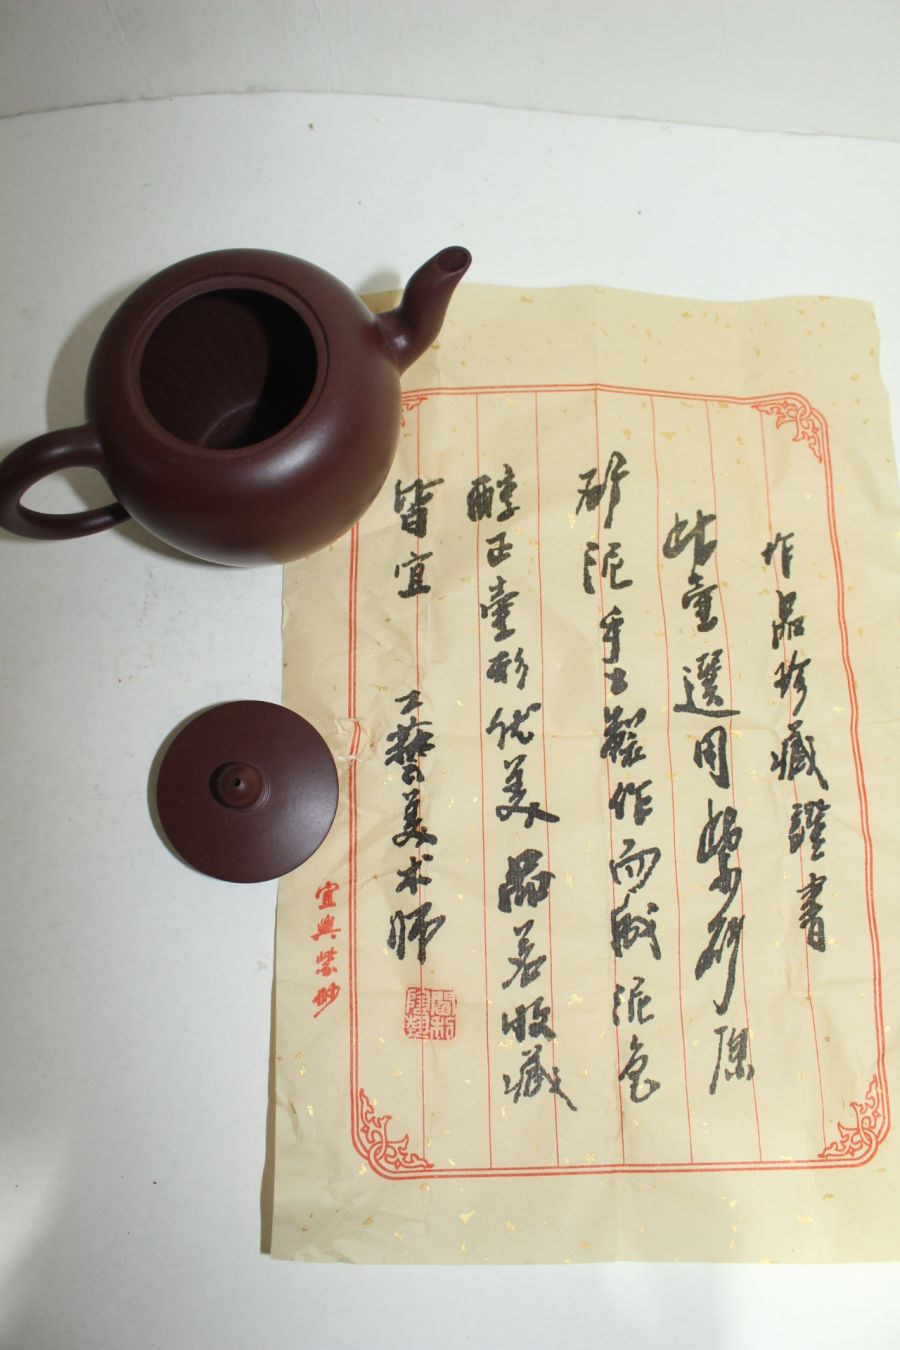 作品珍藏證書
此壺選用紫砂原
矿泥手工製作而成泥色
醇正壺形优美品茗收藏
皆宜 工藝美术师
宜興紫砂